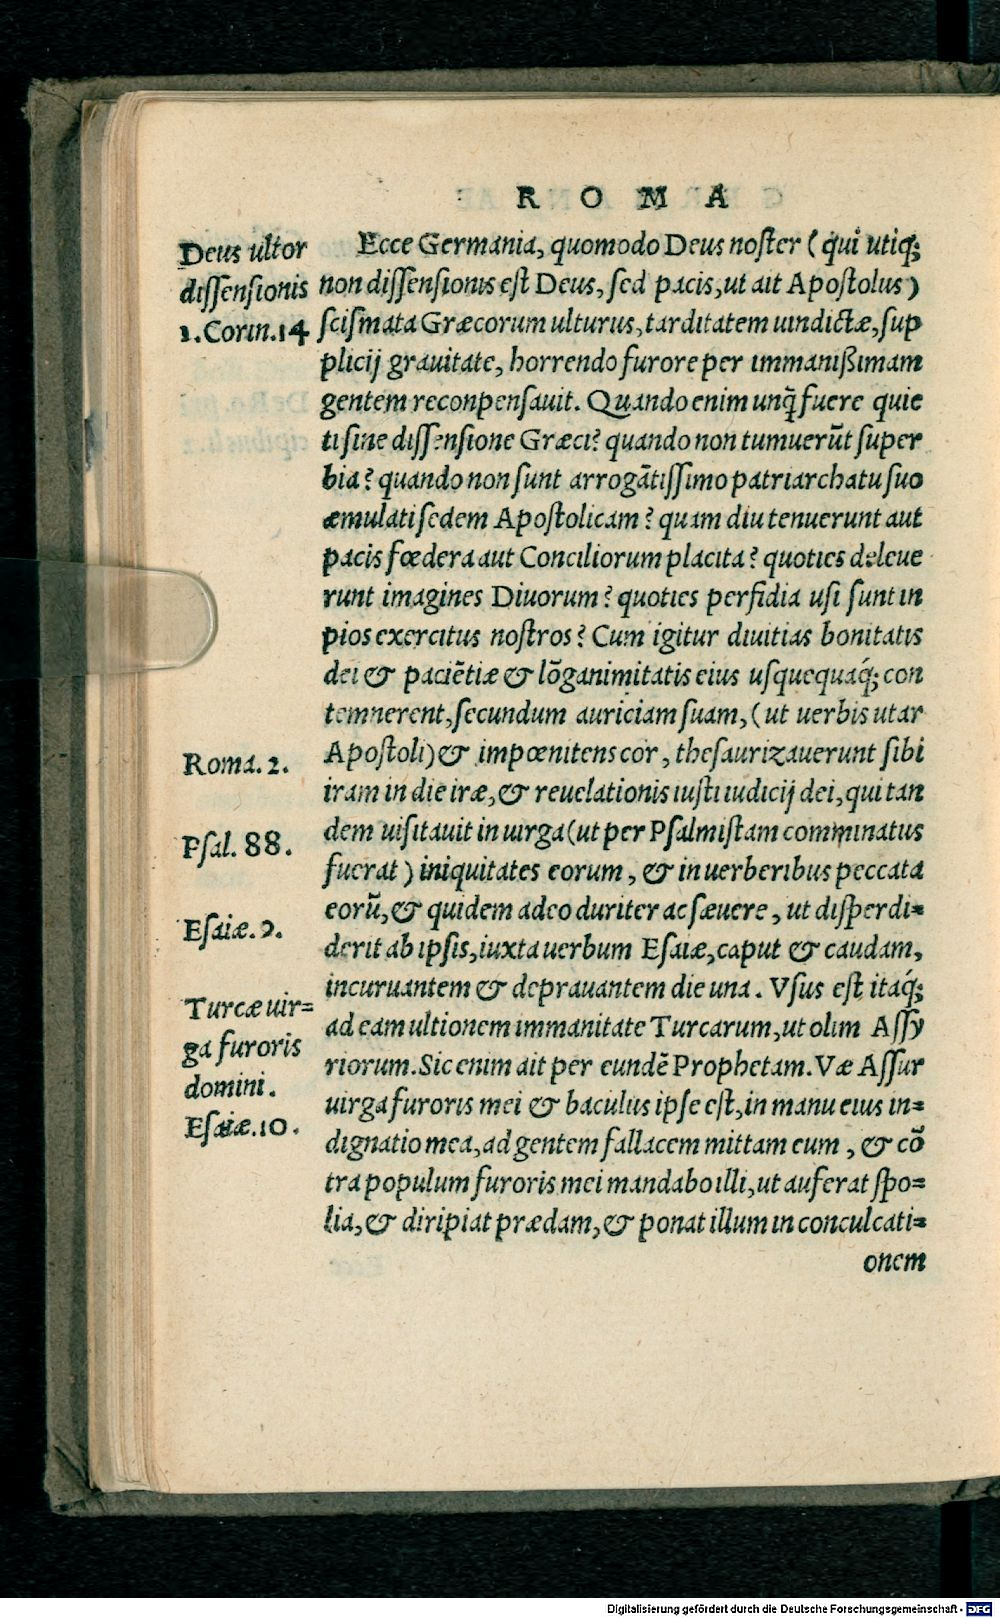 ROMA
Deus ultor
dissensionis
1.Corin.14
Ecce Germania, quomodo Deus noster (qui utiq;
non dissensionis est Deus, sed pacis, ut ait Apostolus)
scismata Græcorum ulturus, tarditatem uindictæ, sup
plicij grauitate, horrendo furore per immanißimam
gentem reconpensauit. Quando enim unq̃ fuere quie
ti sine dissensione Græci? quando non tumuerũt super
bia? quando non sunt arrogãtissimo patriarchatu suo
æmulati sedem Apostolicam? quam diu tenuerunt aut
pacis fœdera aut Conciliorum placita? quoties deleue
runt imagines Diuorum? quoties perfidia usi sunt in
pios exercitus nostros? Cum igitur diuitias bonitatis
dei & paciẽtiæ & lõganimitatis eius usquequaq́; con
temnerent, secundum auriciam suam, (ut uerbis utar
Apostoli) & impœnitens cor, thesaurizauerunt sibi
iram in die iræ, & reuelationis iusti iudicij dei, qui tan
dem uisitauit in uirga (ut per Psalmistam comminatus
fuerat) iniquitates eorum, & in uerberibus peccata
eorũ, & quidem adeo duriter ac sæuere, ut disperdi=
derit ab ipsis, iuxta uerbum Esaiæ, caput & caudam,
incuruantem & deprauantem die una. Vsus est itaq́;
ad eam ultionem immanitate Turcarum, ut olim Assy
riorum. Sic enim ait per eundẽ Prophetam. Væ Assur
uirga furoris mei & baculus ipse est, in manu eius in=
dignatio mea, ad gentem fallacem mittam eum, & cõ
tra populum furoris mei mandabo illi, ut auferat spo=
lia, & diripiat prædam, & ponat illum in conculcati=
onem
Roma.2.
Psal.88.
Esaiæ.9.
Turcæ uir=
ga furoris
domini.
Esaiæ.10.
Digitalisierung gefördert durch die Deutsche Forschungsgemeinschaft - DFG